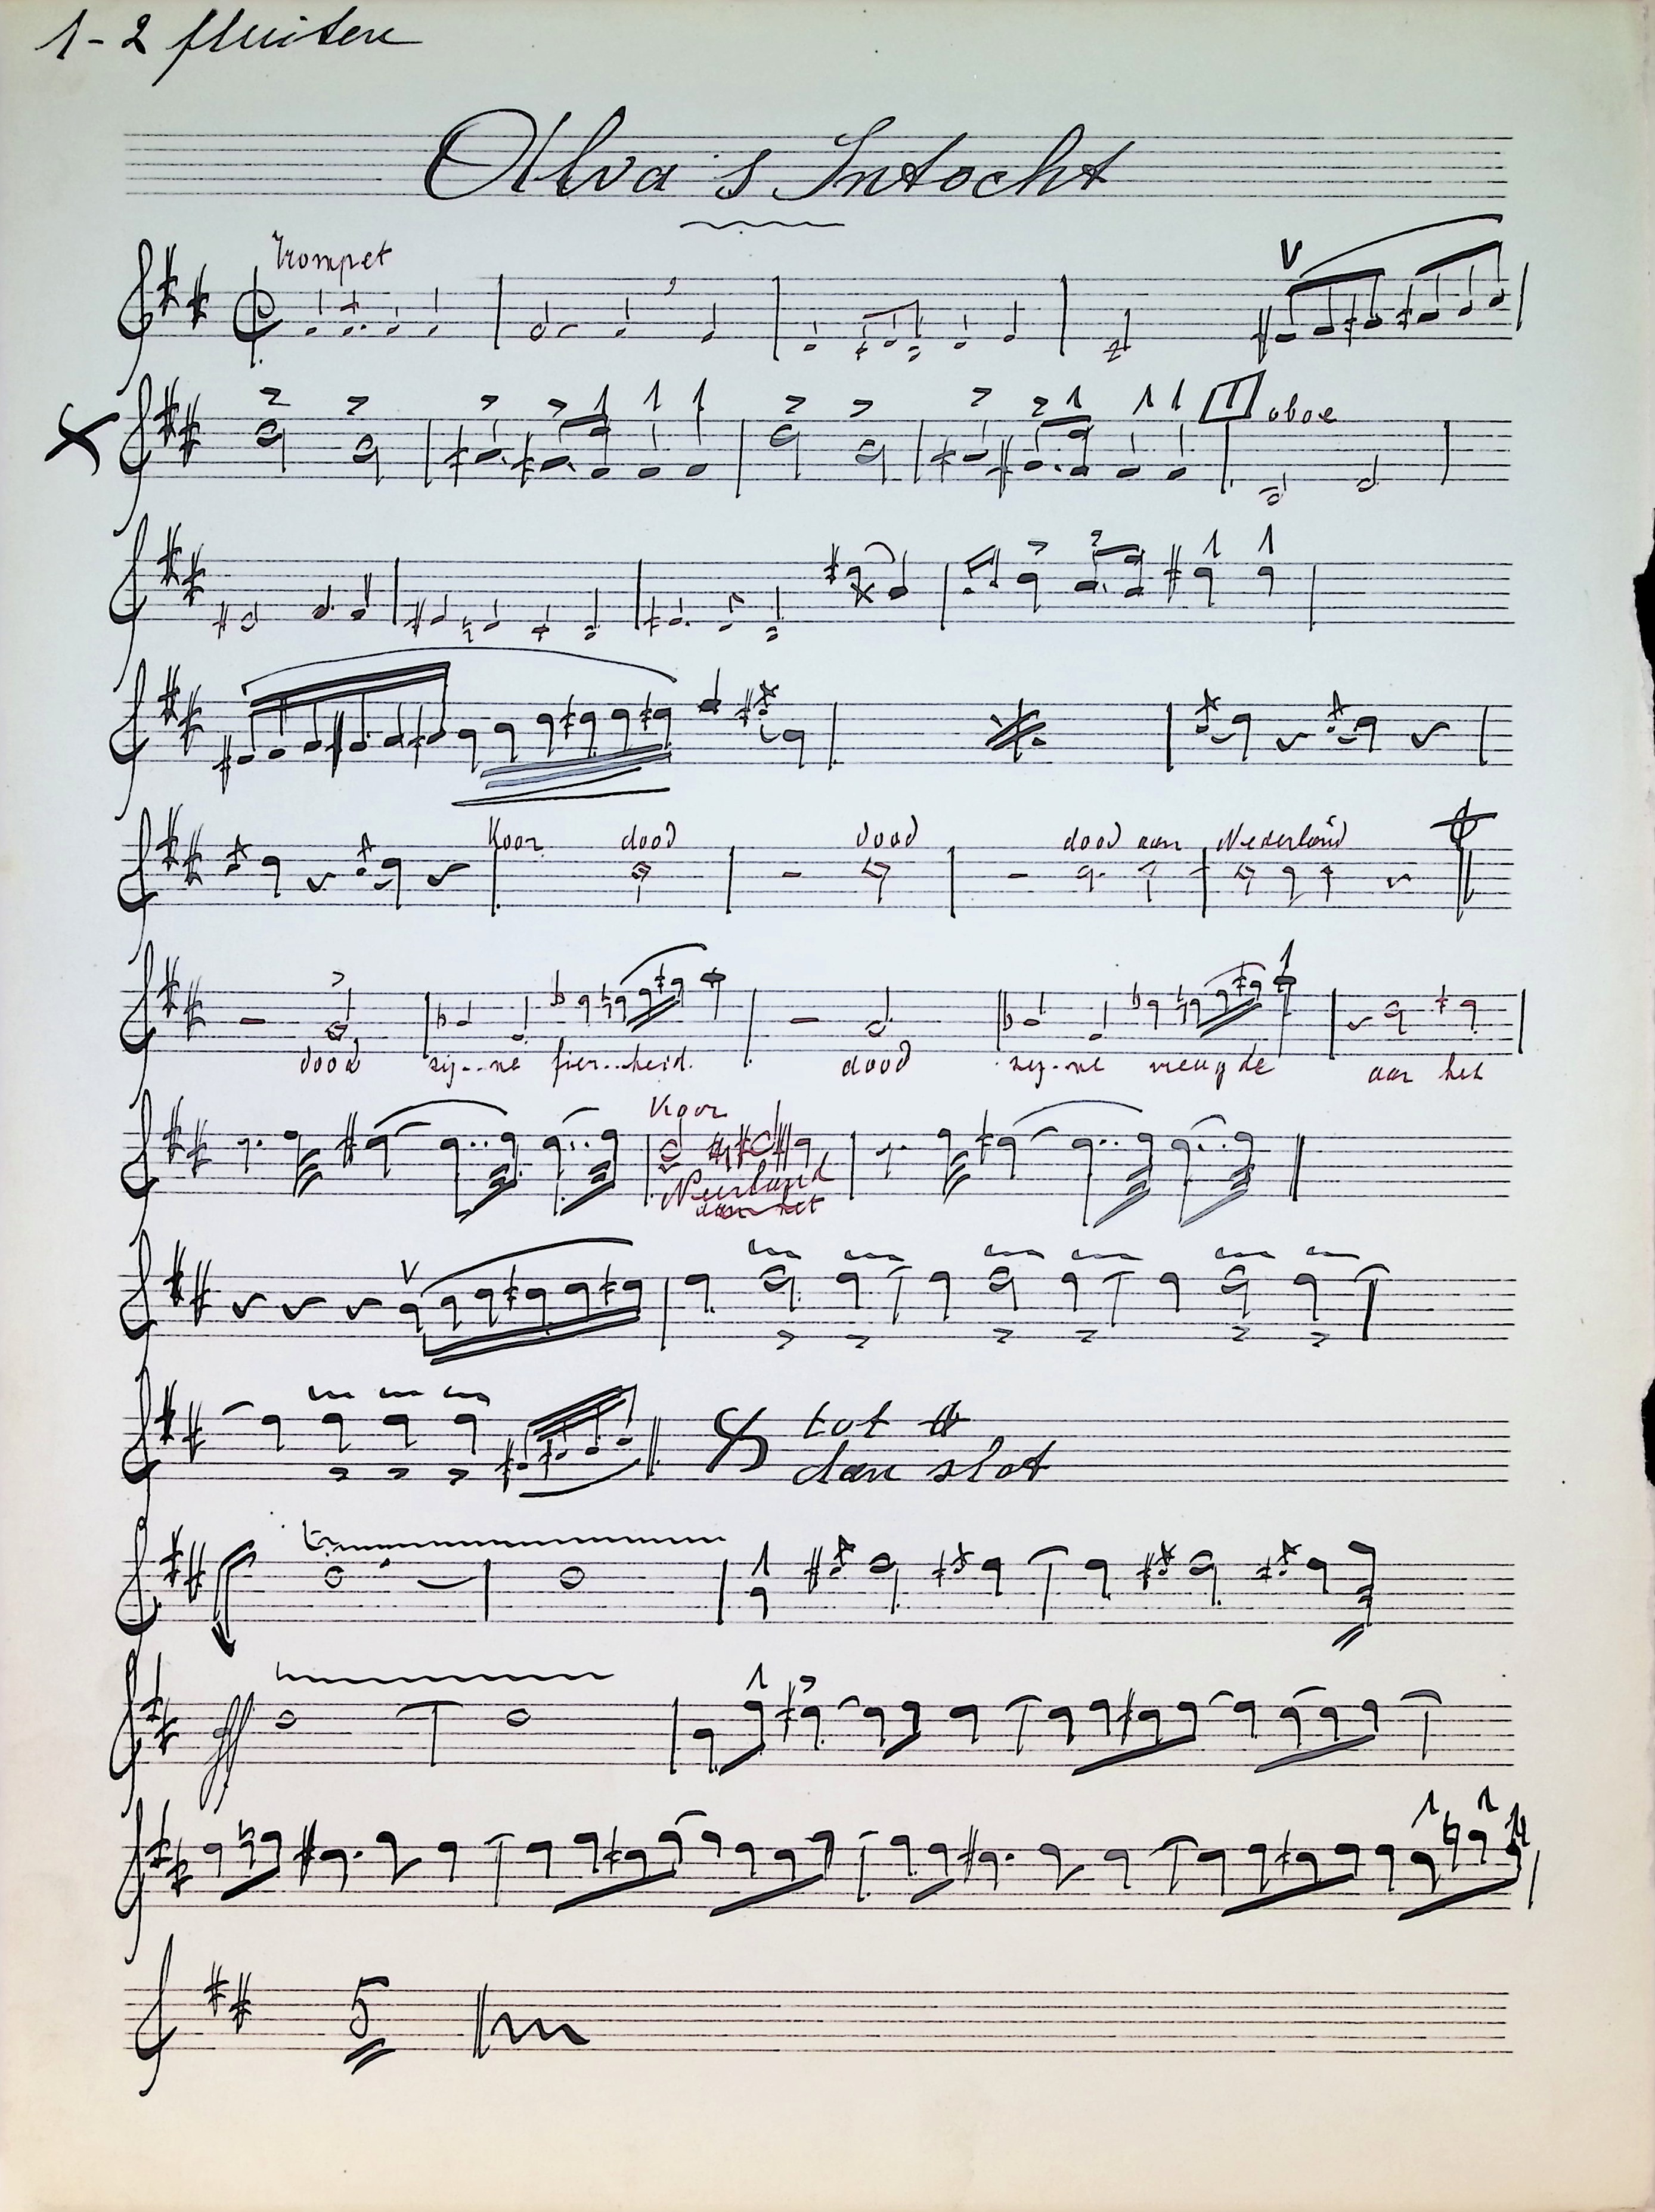 1-2 fluiten
Alva's Intocht
Trompet
1 oboe
Koor dood dood dood aan Nederland
dood zij...ne fier...heid. dood zij...ne vreugde aan het
Koor
Neerland
aan het
tot
dan slot
tr
ff
5